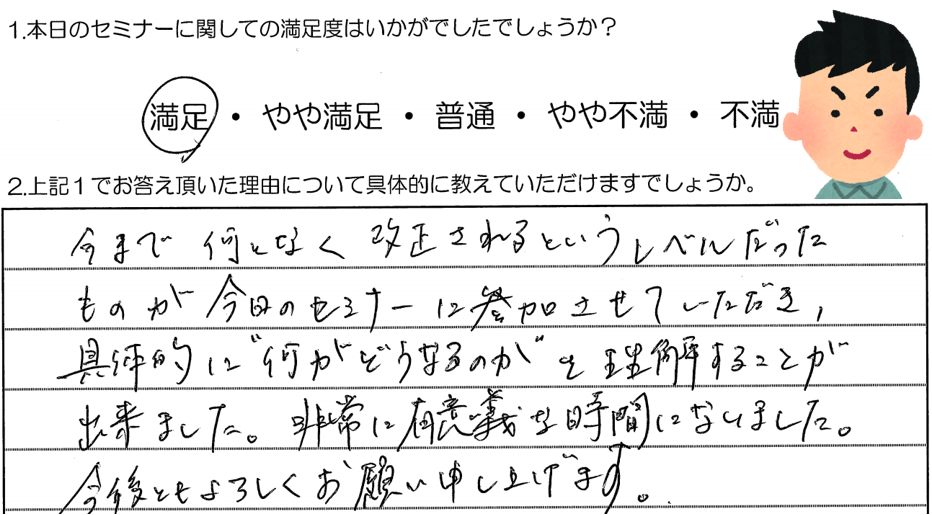 1.本日のセミナーに関しての満足度はいかがでしたでしょうか？
満足 ・ やや満足 ・ 普通 ・ やや不満 ・ 不満
2.上記１でお答え頂いた理由について具体的に教えていただけますでしょうか。
今まで何となく改正されるというレベルだった
ものが今日のセミナーに参加させていただき，
具体的に"何がどうなるのか"を理解することが
出来ました。非常に有意義な時間になりました。
今後ともよろしくお願い申し上げます。